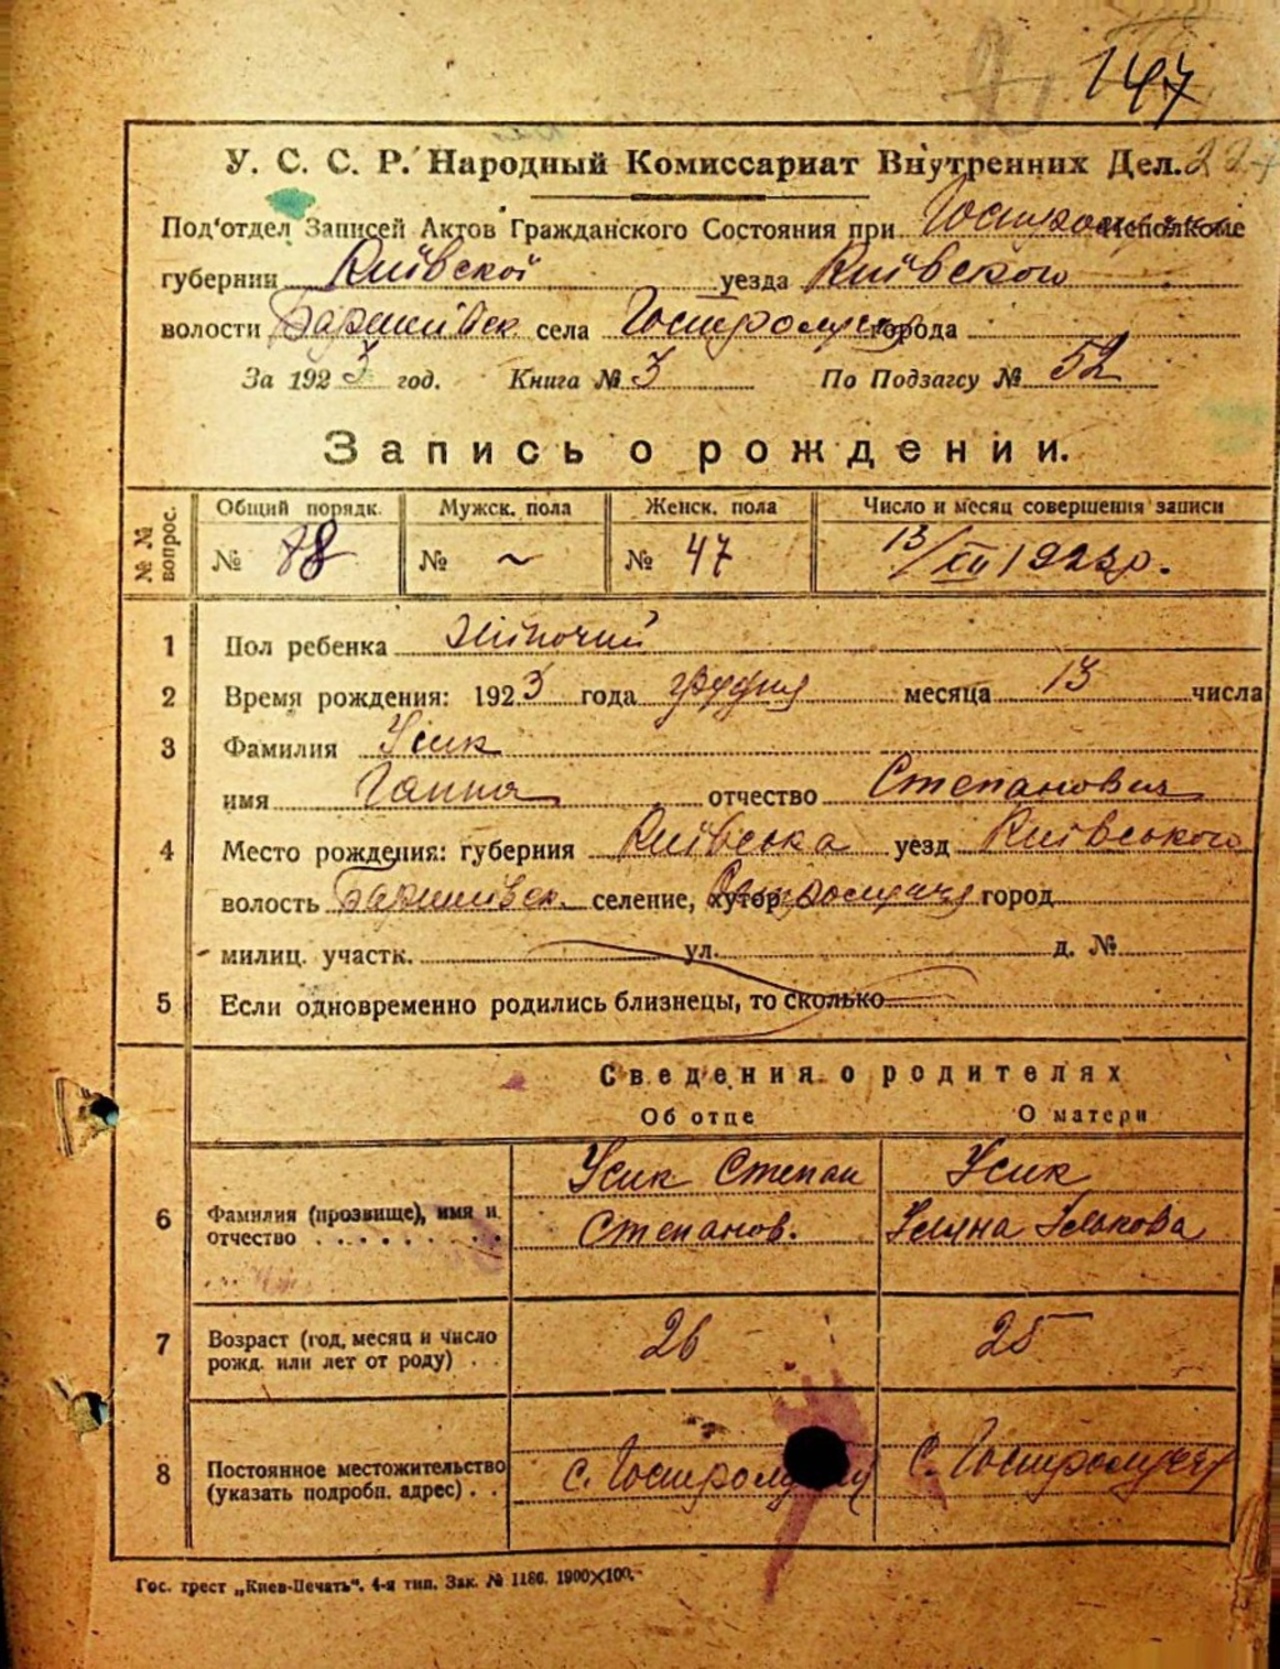 147
У. С. С. Р. Народный Комиссариат Внутренних Дел.
Под'отдел Записей Актов Гражданского Состояния при Исполкоме
губернии Київської уезда Київского
волости Баришівск села Гостролуччя города
За 1923 год. Книга № 3 По Подзагсу № 52
Запись о рождении.
№ № вопрос. Общий порядк. Мужск. пола Женск. пола Число и месяц совершения записи
№ 88 № ~ № 47 13/XII 1923р.
1 Пол ребенка Жіночий
2 Время рождения: 1923 года грудня месяца 13 числа
3 Фамилия Усик
имя Ганна отчество Степановна
4 Место рождения: губерния Київська уезд Київського
волость Баришівск. селение, хутор Гостролуччя город
милиц. участк. ул. д. №
5 Если одновременно родились близнецы, то сколько
Сведения о родителях
Об отце О матери
Усик Степан Усик
6 Фамилия (прозвище), имя и
отчество Степанов. Уляна
7 Возраст (год, месяц и число 26 25
рожд. или лет от роду) . .
8 Постоянное местожительство с. Гостролуччя с. Гостролуччя
(указать подробн. адрес) . .
Гос. трест „Киев-Печать“. 4-я тип. Зак. № 1186. 1900×100.